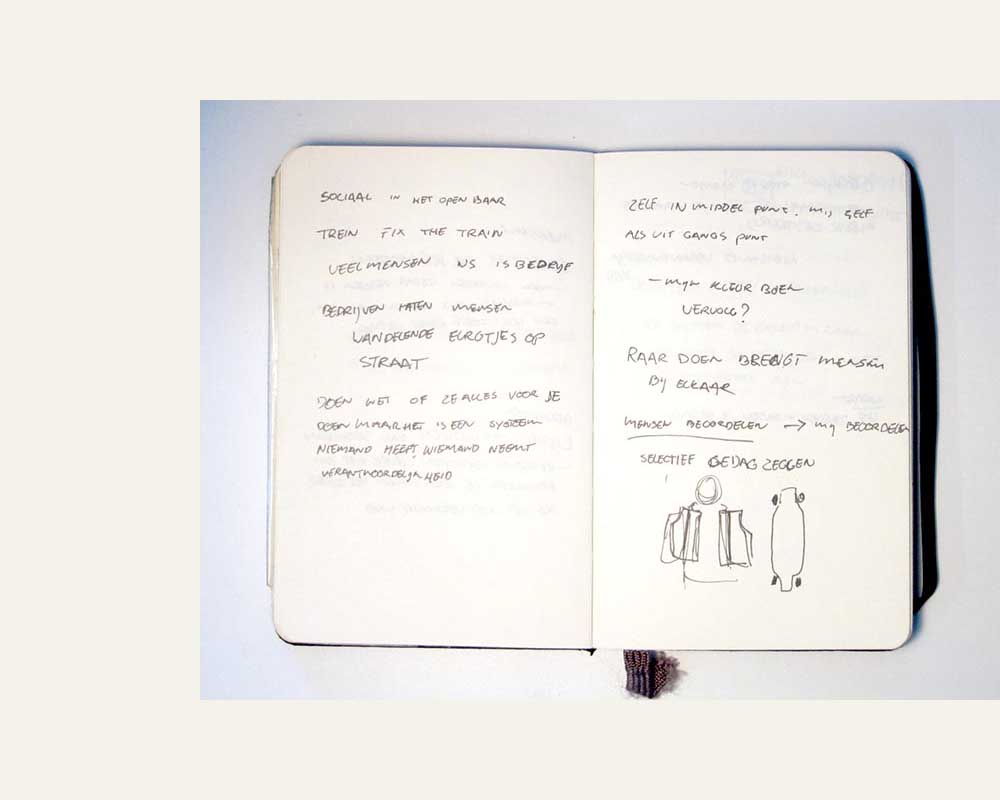 SOCIAAL IN HET OPENBAAR
TREIN FIX THE TRAIN
VEEL MENSEN NS IS BEDRIJF
BEDRIJVEN HATEN MENSEN
WANDELENDE EUROTJES OP
STRAAT
DOEN WET OF ZE ALLES VOOR JE
DOEN MAAR HET IS EEN SYSTEEM
NIEMAND HEEFT WIEMAND NEEMT
VERANTWOORDELIJKHEID
ZELF IN MIDDEL PUNT. MIJ ZELF
ALS UIT GANGS PUNT
— MIJN KLEUR BOEK
VERVOLG?
RAAR DOEN BRENGT MENSEN
BIJ ELKAAR
MENSEN BEOORDELEN → MIJ BEOORDELEN
SELECTIEF GEDAG ZEGGEN